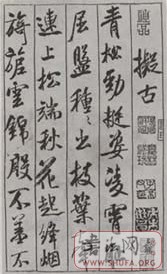 擬古
青松勁挺姿凌霄
屈盤種々出枝葉
連上松端秋花起絳烟
旖旎雲錦殷不羞不
SHUFA.ORG